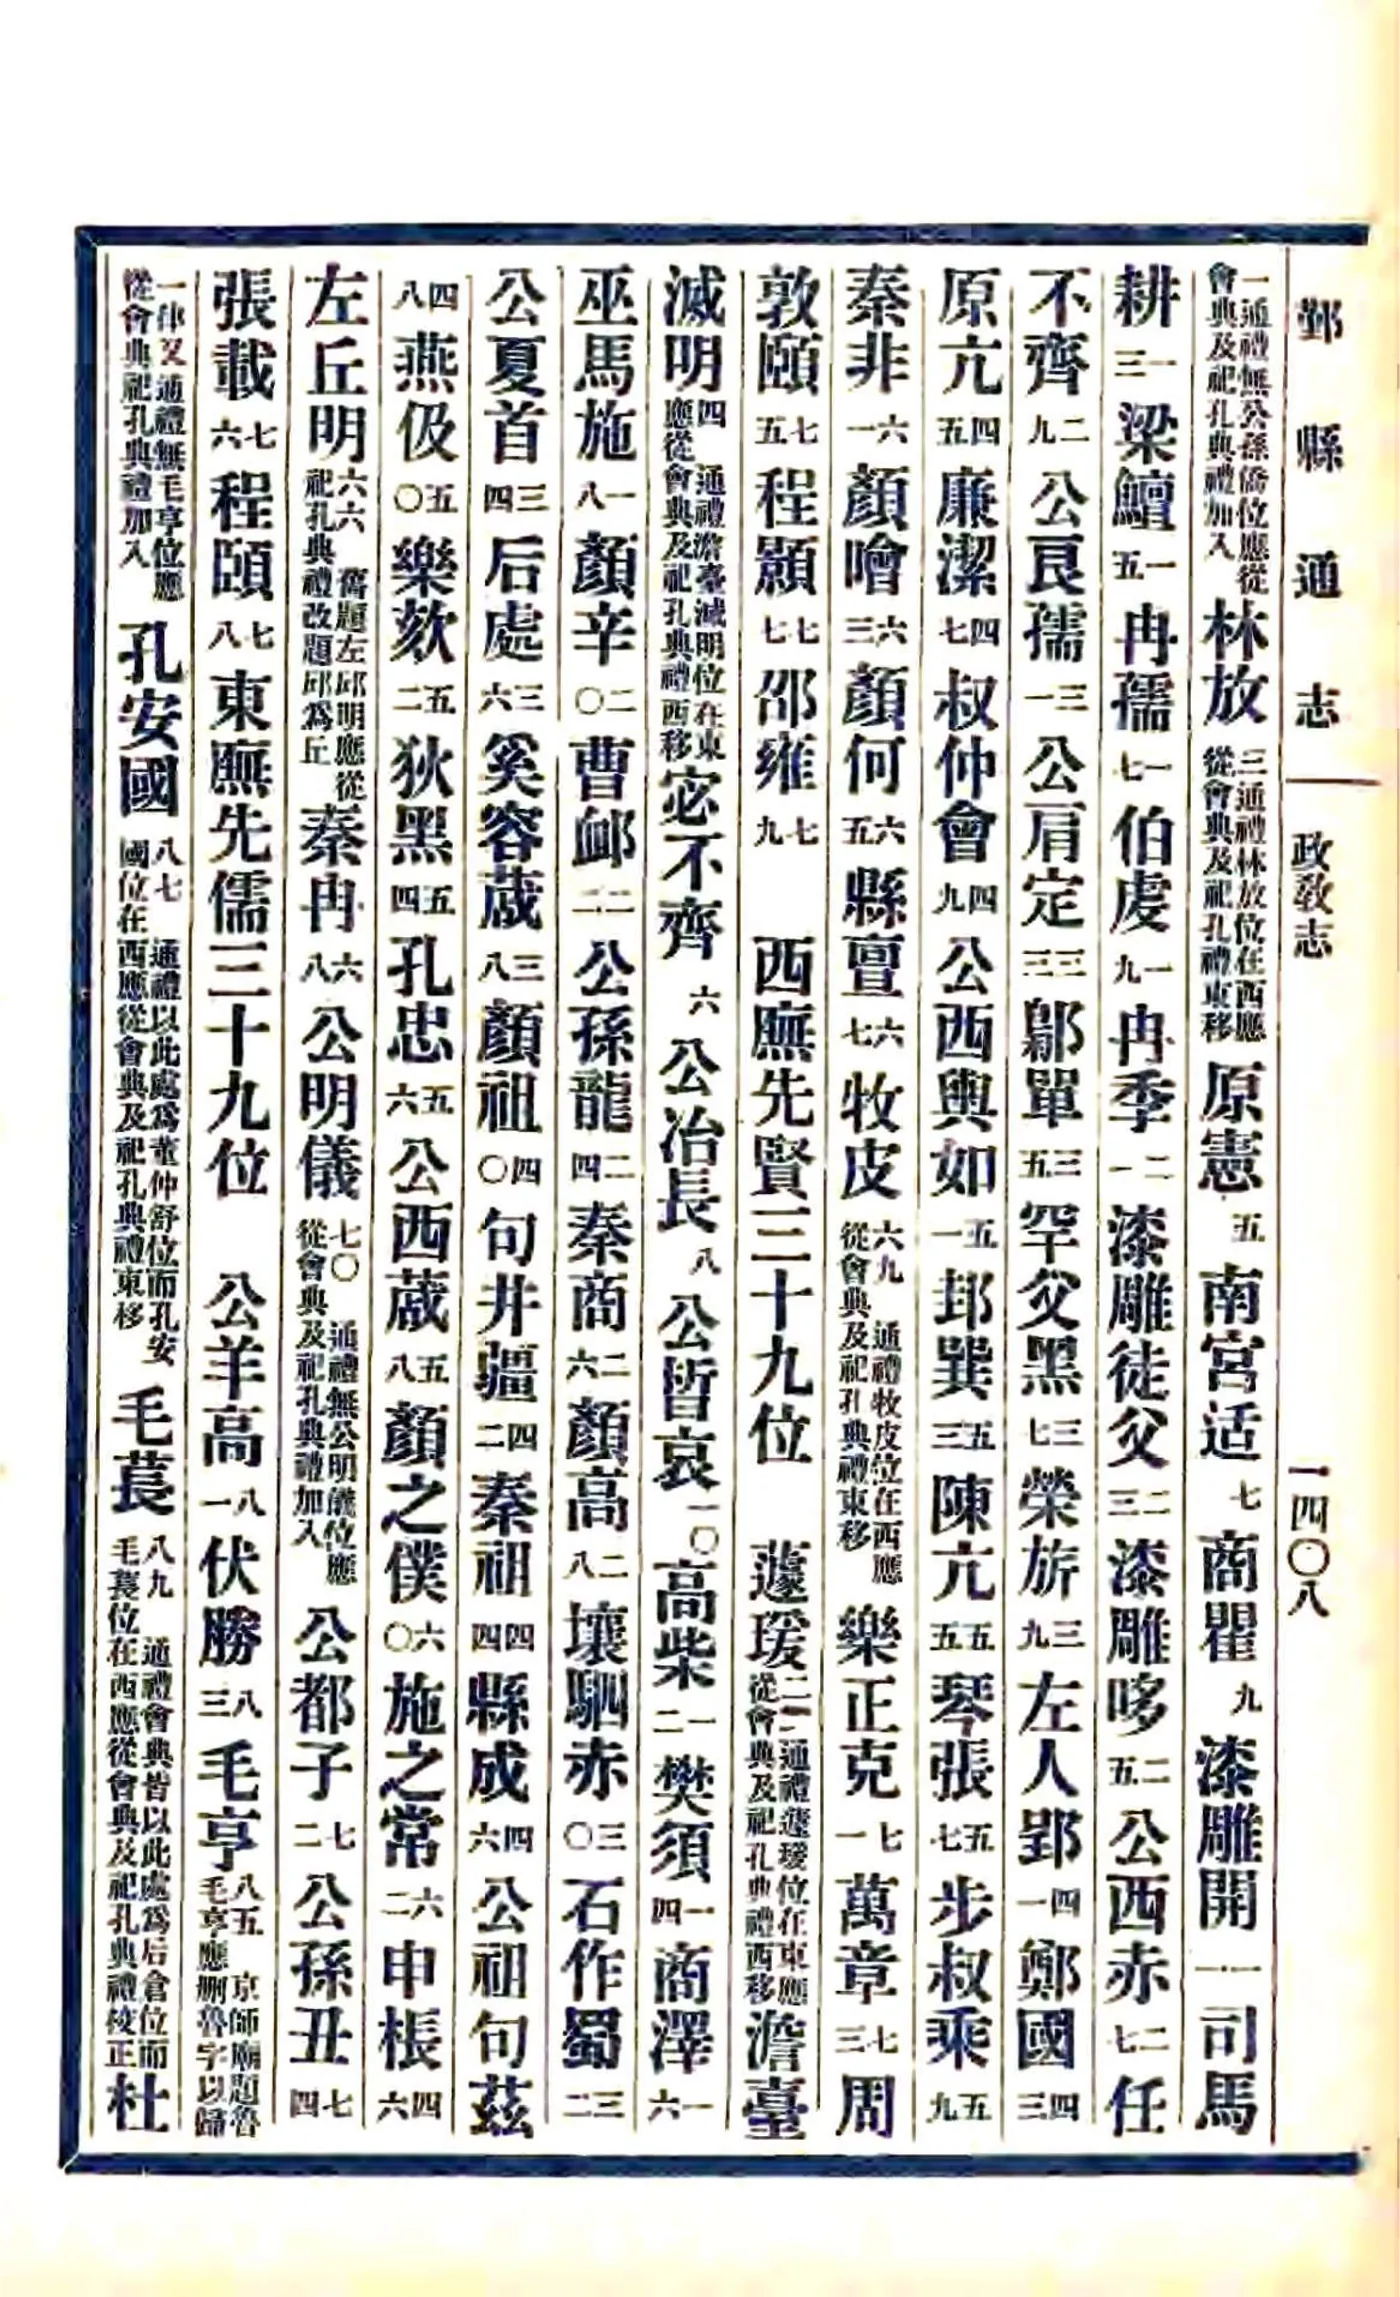 鄞縣通志 政教志 一四〇八
一通禮無公孫僑位應從會典及祀孔典禮加入林放三通禮林放位在西應從會典及祀孔禮東移原憲五南宮适七商瞿九漆雕開一一司馬
耕一三梁鱣一五冉孺一七伯虔一九冉季二一漆雕徒父二三漆雕哆二五公西赤二七任
不齊二九公良孺三一公肩定三三鄡單三五罕父黑三七榮旂三九左人郢四一鄭國四三
原亢四五廉潔四七叔仲會四九公西輿如五一邽巽五三陳亢五五琴張五七步叔乘五九
秦非六一顏噲六三顏何六五縣亶六七牧皮六九通禮牧皮位在西應從會典及祀孔典禮東移樂正克七一萬章七三周
敦頤七五程顥七七邵雍七九 西廡先賢三十九位 蘧瑗二通禮蘧瑗位在東應從會典及祀孔典禮西移澹臺
滅明四通禮澹臺滅明位在東應從會典及祀孔典禮西移宓不齊六公冶長八公晳哀一〇高柴一二樊須一四商澤一六
巫馬施一八顏辛二〇曹卹二二公孫龍二四秦商二六顏高二八壤駟赤三〇石作蜀三二
公夏首三四后處三六奚容蒧三八顏祖四〇句井疆四二秦祖四四縣成四六公祖句茲
四八燕伋五〇樂欬五二狄黑五四孔忠五六公西蒧五八顏之僕六〇施之常六二申棖四六
左丘明六六舊題左邱明應從祀孔典禮改題邱為丘秦冉六八公明儀七〇通禮無公明儀位應從會典及祀孔典禮加入公都子七二公孫丑七四
張載七六程頤七八東廡先儒三十九位 公羊高八一伏勝八三毛亨八五京師廟題魯毛亨應删魯字以歸
一律又通禮無毛亨位應從會典祀孔典禮加入孔安國八七通禮以此處為董仲舒位而孔安國位在西應從會典及祀孔典禮東移毛萇八九通禮會典皆以此處為后倉位而毛萇位在西應從會典及祀孔典禮校正杜